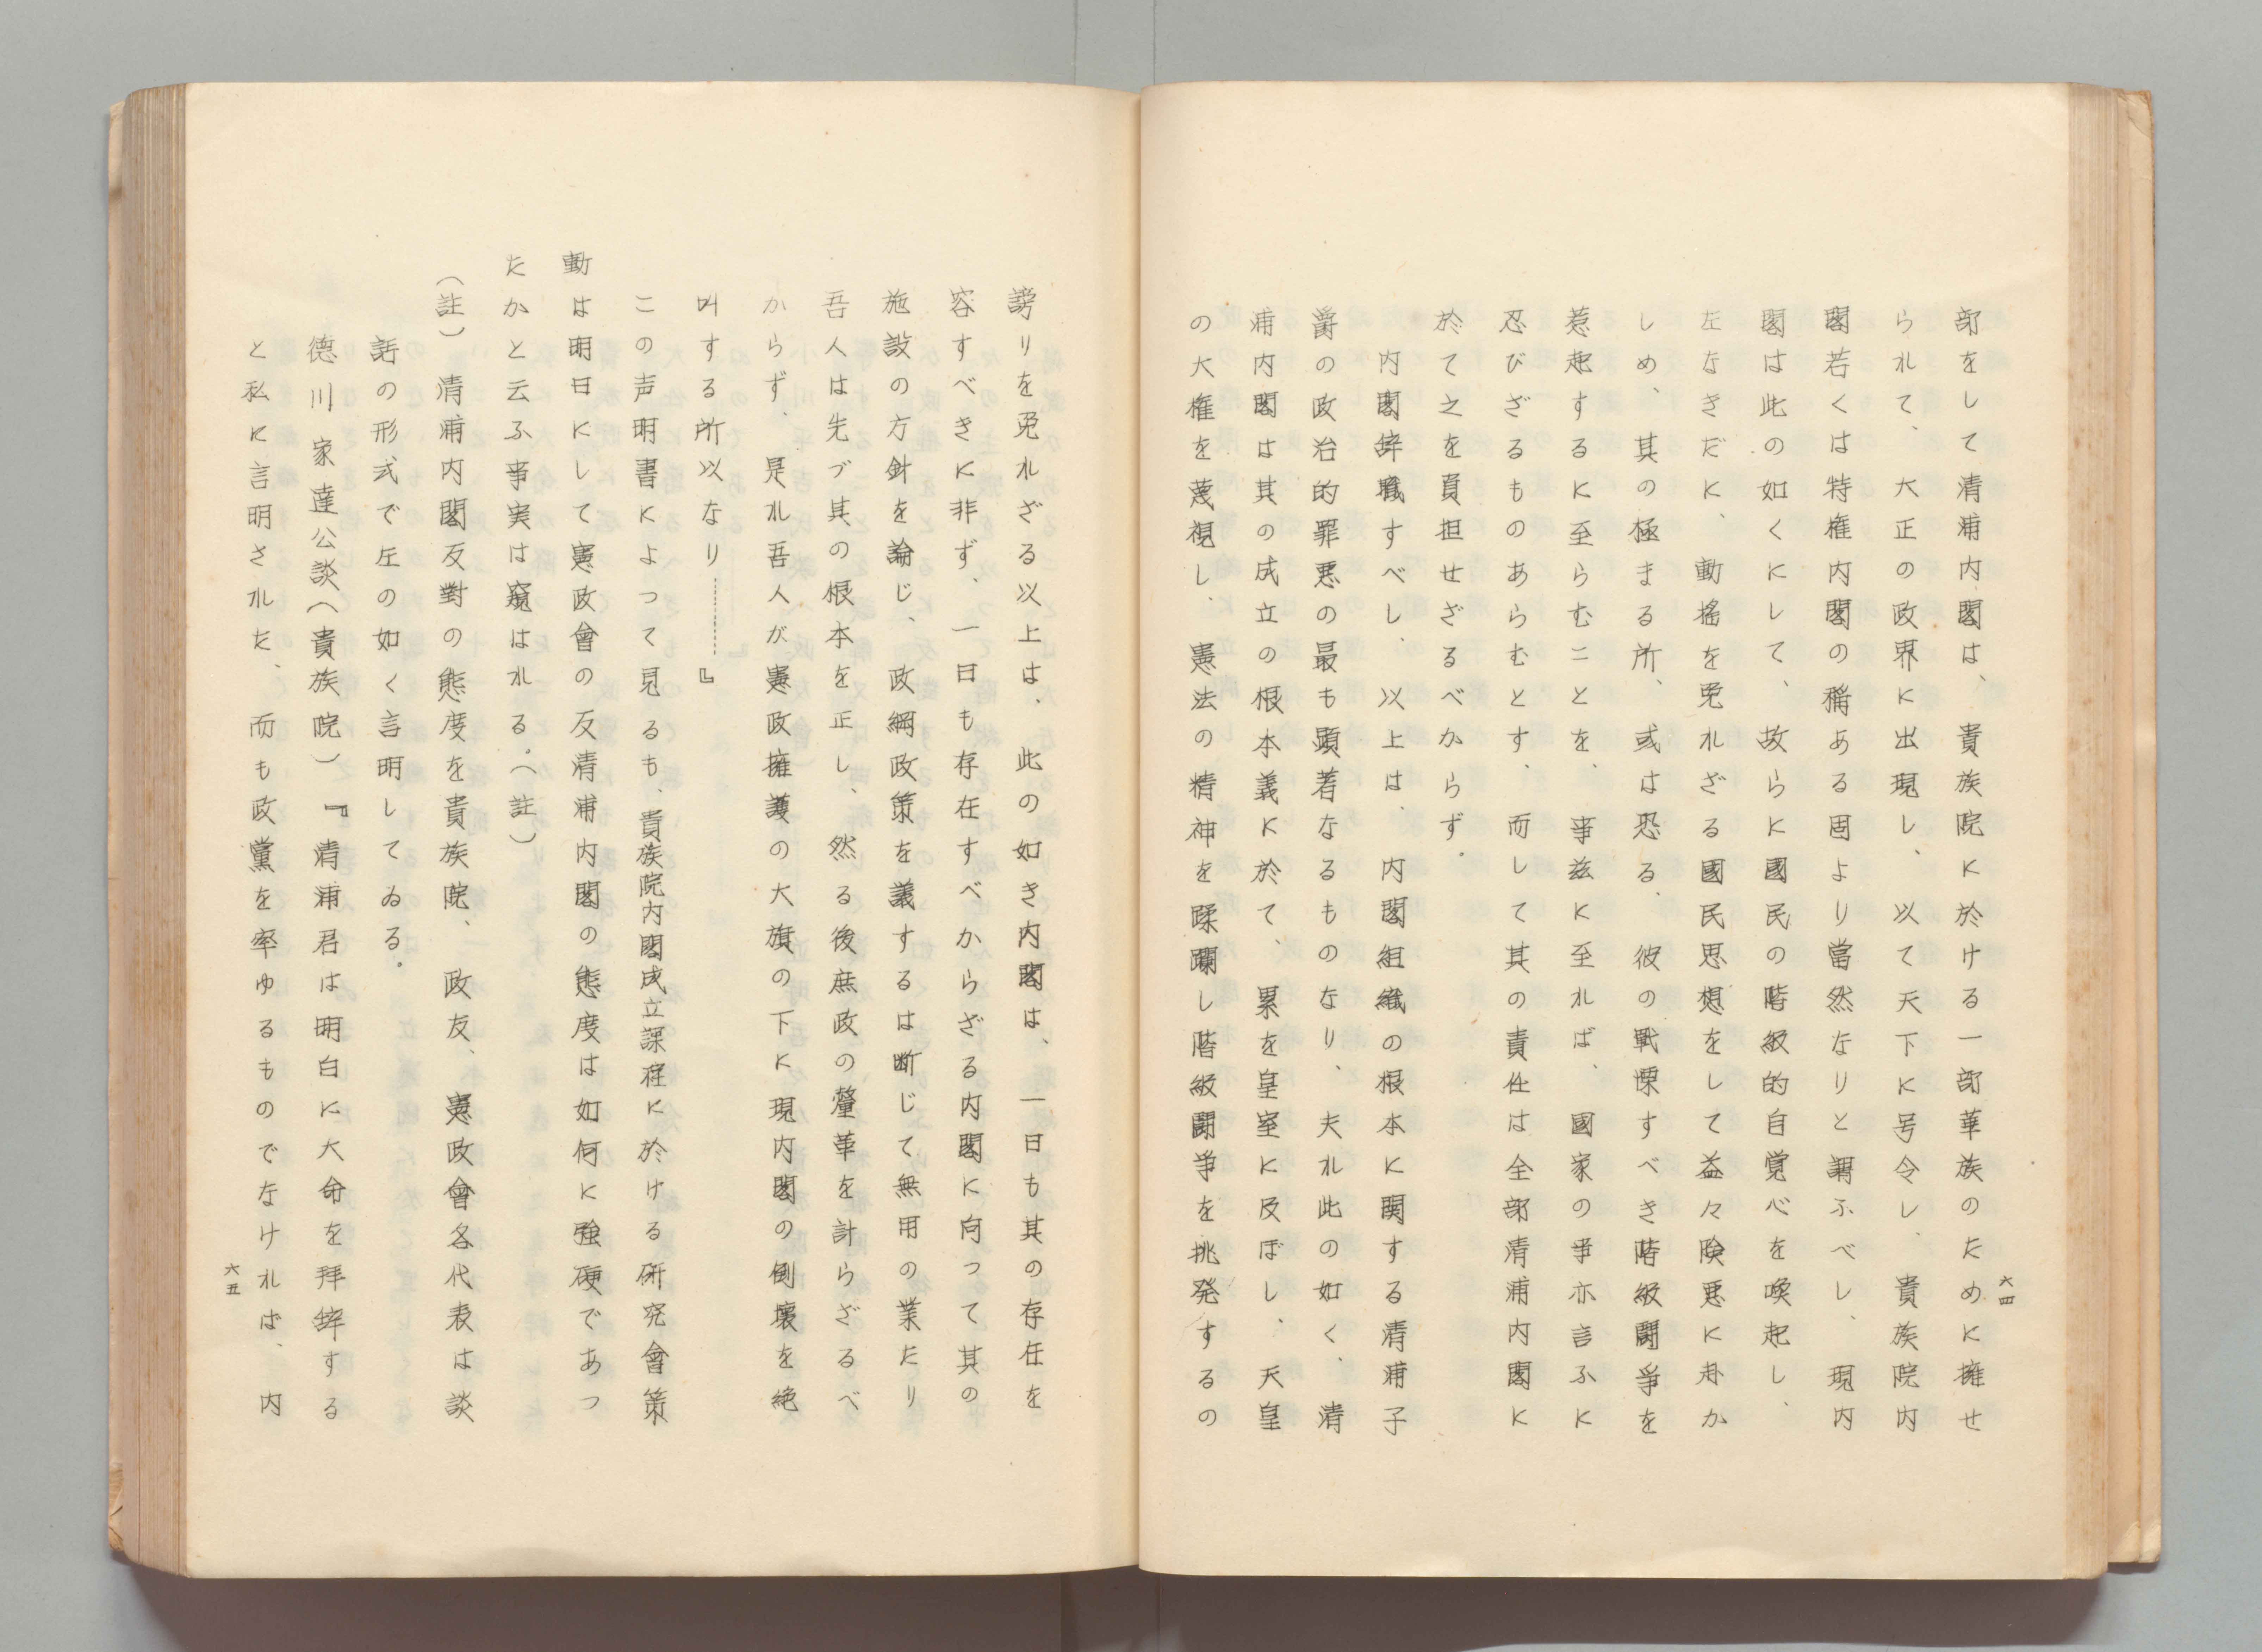 部をして清浦内閣は、貴族院に於ける一部華族のために擁せ
られて、大正の政界に出現し、以て天下に号令し、貴族院内
閣若くは特権内閣の稱ある固より當然なりと謂ふべし、現内
閣は此の如くにして、故らに國民の階級的自覚心を喚起し、
左なきだに、動搖を免れざる國民思想をして益々険悪に赴か
しめ、其の極まる所、或は恐る、彼の戰慄すべき階級闘爭を
惹起するに至らむことを、事茲に至れば、國家の亊亦言ふに
忍びざるものあらむとす、而して其の責任は全部清浦内閣に
於て之を負担せざるべからず。
内閣辞職すべし、以上は、内閣組織の根本に関する清浦子
爵の政治的罪悪の最も顕著なるものなり、夫れ此の如く、清
浦内閣は其の成立の根本義に於て、累を皇室に及ぼし、天皇
の大権を蔑視し、憲法の精神を蹂躙し階級闘争を挑発するの
六四
謗りを免れざる以上は、此の如き内閣は、一日も其の存在を
容すべきに非ず、一日も存在すべからざる内閣に向つて其の
施設の方針を論じ、政綱政策を議するは断じて無用の業たり
吾人は先づ其の根本を正し、然る後庶政の釐革を計らざるべ
からず、是れ吾人が憲政擁護の大旗の下に現内閣の倒壊を絶
叫する所以なり…………』
この声明書によって見るも、貴族院内閣成立課程に於ける研究會策
動は明日にして憲政會の反清浦内閣の態度は如何に強硬であつ
たかと云ふ事実は窺はれる。（註）
（註）清浦内閣反對の態度を貴族院、政友、憲政會各代表は談
話の形式で左の如く言明してゐる。
德川家達公談（貴族院）『清浦君は明白に大命を拜辞する
と私に言明された、而も政黨を率ゆるものでなければ、内
六五